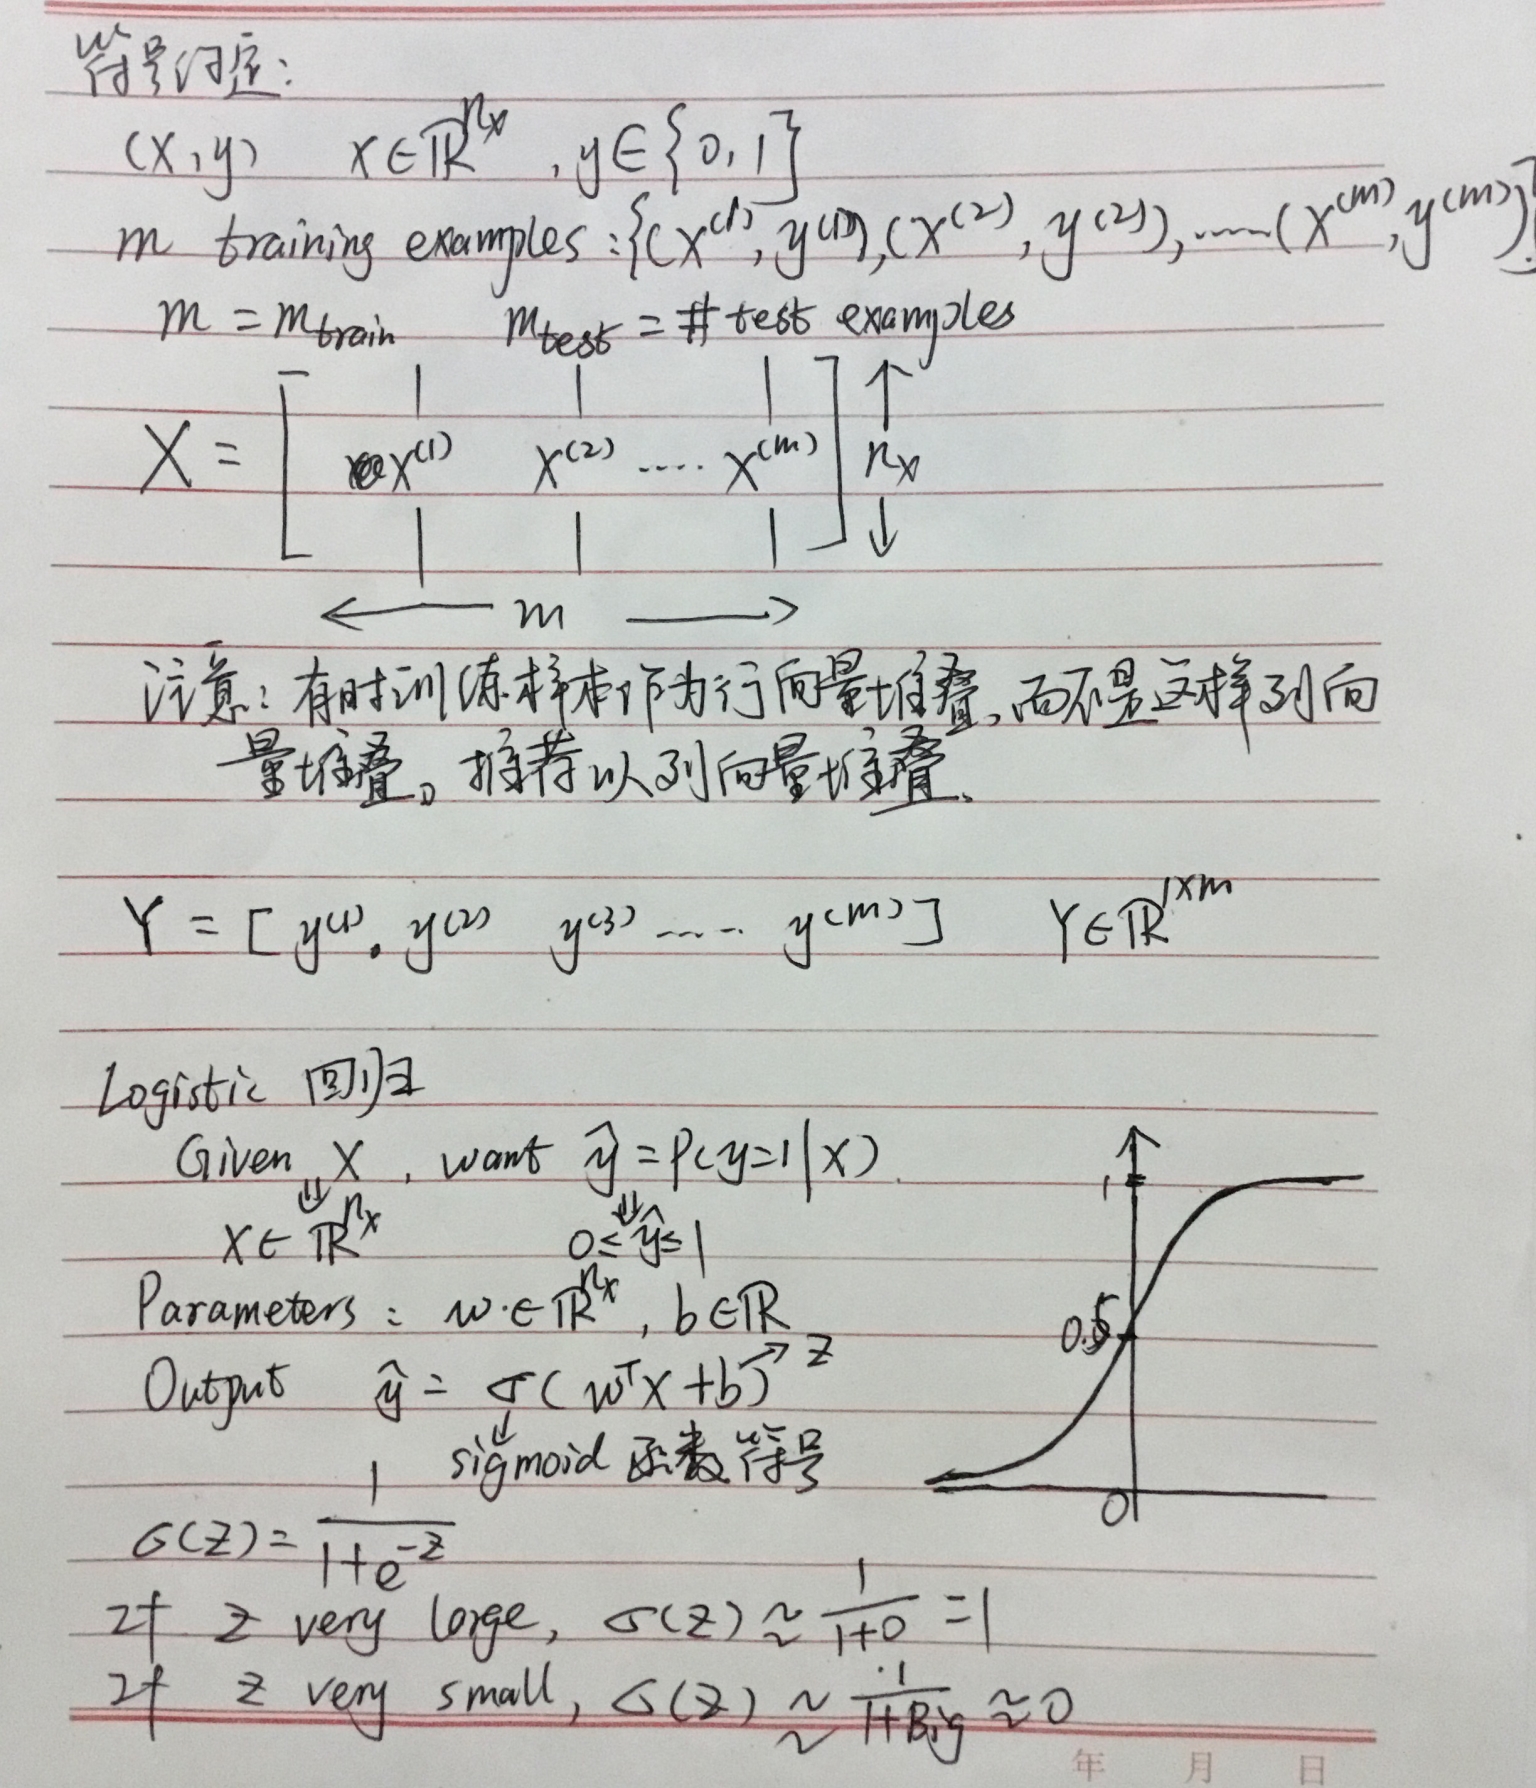 符号约定：
(x, y)  x∈ℝ^{n_x}, y∈{0,1}
m training examples: {(x^{(1)}, y^{(1)}), (x^{(2)}, y^{(2)}), ……(x^{(m)}, y^{(m)})}
m = m_{train}  m_{test} = # test examples
X = [ x^{(1)}  x^{(2)} …… x^{(m)} ] ↑ n_x ↓
← m →
注意：有时训练样本作为行向量堆叠，而不是这样列向
量堆叠。推荐以列向量堆叠。
Y = [ y^{(1)}. y^{(2)}  y^{(3)} …… y^{(m)} ]  Y∈ℝ^{1×m}
Logistic 回归
Given x, want ŷ = P(y=1|x).
⇓  ⇓
x∈ℝ^{n_x}  0≤ŷ≤1
Parameters: w·∈ℝ^{n_x}, b∈ℝ
Output  ŷ = σ(w^T x + b) → z
↓
sigmoid 函数符号
1
0.5
0
σ(z) = \frac{1}{1+e^{-z}}
If z very large, σ(z) ≈ \frac{1}{1+0} = 1
If z very small, σ(z) ≈ \frac{1}{1+Big} ≈ 0
年 月 日